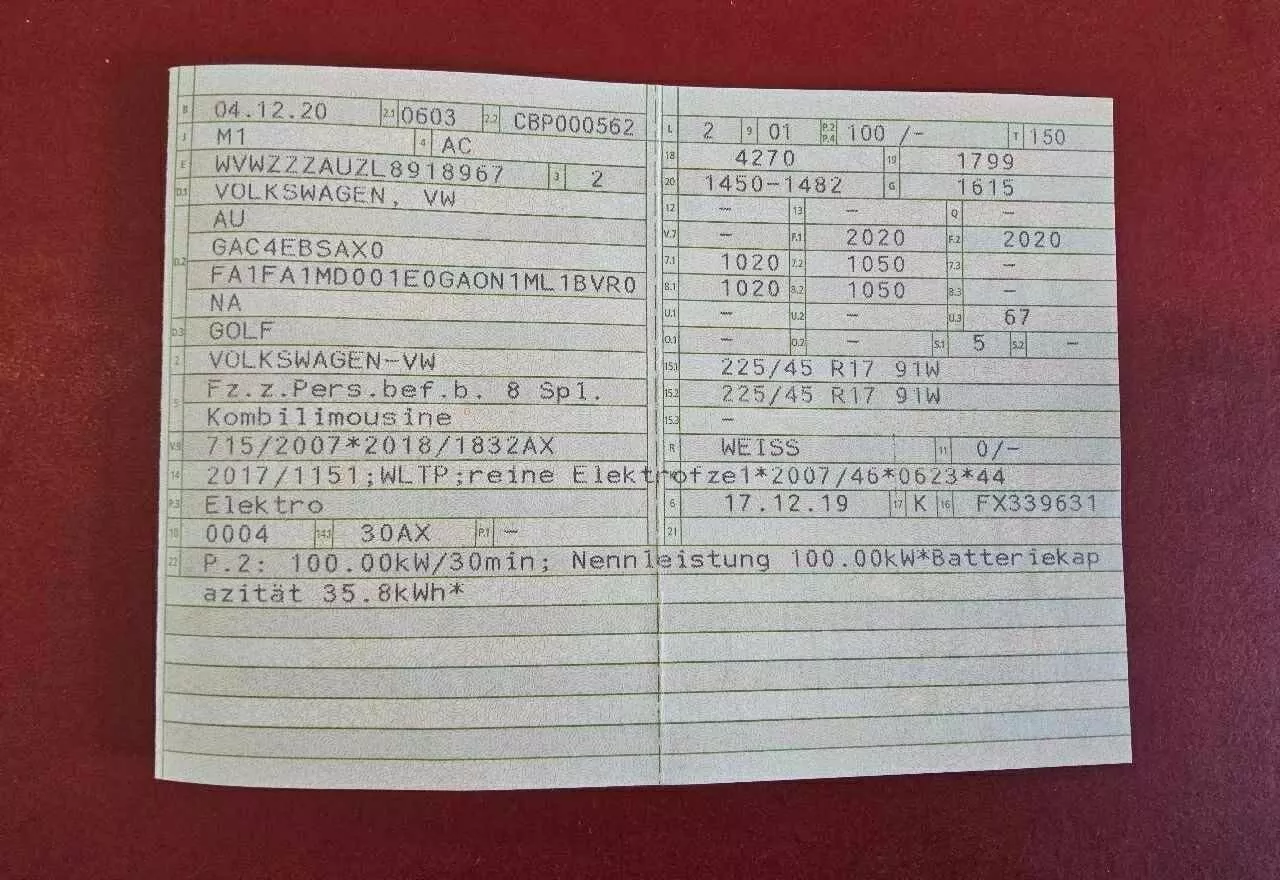 B 04.12.20 2.1 0603 2.2 CBP000562
J M1 4 AC
E WVWZZZAUZL8918967 3 2
D.1 VOLKSWAGEN, VW
AU
D.2 GAC4EBSAX0
FA1FA1MD001E0GAON1ML1BVR0
NA
D.3 GOLF
2 VOLKSWAGEN-VW
5 Fz.z.Pers.bef.b. 8 Spl.
Kombilimousine
V.9 715/2007*2018/1832AX
14 2017/1151;WLTP;reine Elektrofzel*2007/46*0623*44
P.3 Elektro
10 0004 14.1 30AX P.1 —
22 P.2: 100.00kW/30min; Nennleistung 100.00kW*Batteriekap
azität 35.8kWh*
L 2 9 01 P.2 P.4 100 /- T 150
18 4270 19 1799
20 1450-1482 G 1615
12 — 13 — Q —
V.7 — F.1 2020 F.2 2020
7.1 1020 7.2 1050 7.3 —
8.1 1020 8.2 1050 8.3 —
U.1 — U.2 — U.3 67
O.1 — O.2 — S.1 5 S.2 —
15.1 225/45 R17 91W
15.2 225/45 R17 91W
15.3 —
R WEISS 11 0/-
6 17.12.19 17 K 16 FX339631
21